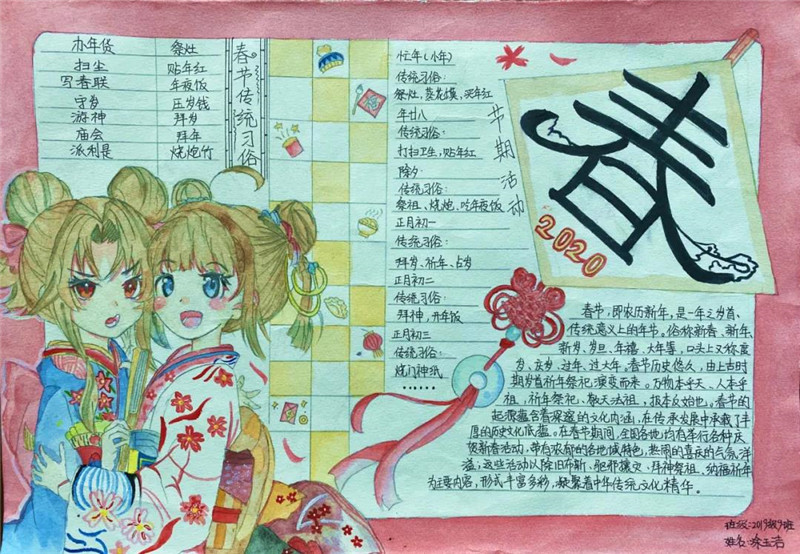 春节传统习俗
办年货 祭灶
扫尘 贴年红
写春联 年夜饭
守岁 压岁钱
游神 拜岁
庙会 拜年
派利是 烧炮竹
节期活动
忙年(小年)
传统习俗:
祭灶,蒸花馍,买年红
年廿八
传统习俗:
打扫卫生,贴年红
除夕:
传统习俗:
祭祖、烧炮、吃年夜饭
正月初一
传统习俗:
拜岁、祈年、占岁
正月初二
传统习俗:
拜神,开年饭
正月初三
传统习俗:
烧门神纸
……
春
2020
春节,即农历新年,是一年之岁首、
传统意义上的年节。俗称新春、新年、
新岁、岁旦、年禧、大年等,口头上又称度
岁、庆岁、过年、过大年。春节历史悠久,由上古时
期岁首祈年祭祀演变而来。万物本乎天、人本乎
祖,祈年祭祀、敬天法祖,报本反始也。春节的
起源蕴含着深邃的文化内涵,在传承发展中承载了丰
厚的历史文化底蕴。在春节期间,全国各地均有举行各种庆
贺新春活动,带有浓郁的各地域特色,热闹的喜庆的气氛洋
溢;这些活动以除旧布新、驱邪攘灾、拜神祭祖、纳福祈年
为主要内容,形式丰富多彩,凝聚着中华传统文化精华。
班级:2019级9班
姓名:玉洁